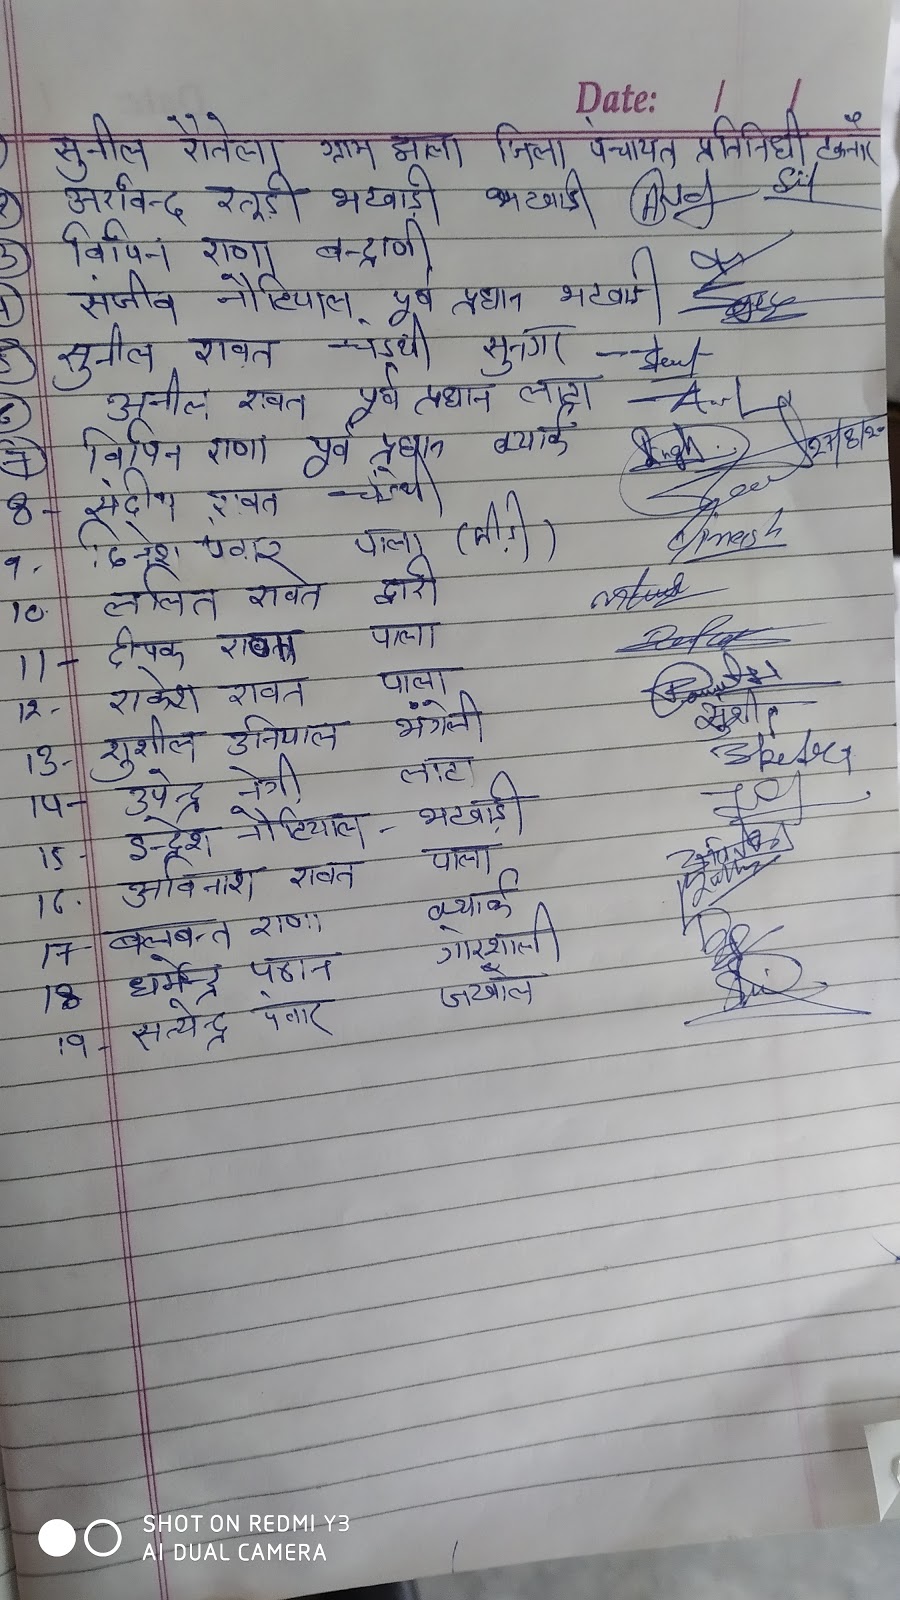 Date: / /
सुनील रौतेला ग्राम झाला जिला पंचायत प्रतिनिधी टकनौर
2 अरविन्द रतूड़ी भटवाड़ी भटवाड़ी
3 विपिन राणा चन्द्राणी
4 संजीव नौटियाल पूर्व प्रधान भटवाड़ी
5 सुनील रावत चड़थी सुनगर
6 अनील रावत पूर्व प्रधान लाटा
7 विपिन राणा पूर्व प्रधान क्यार्क Singh 27/8/20
8- संदीप रावत
9. दिनेश पंवार पाला Dinesh
10. ललित रावत द्वारी
11- दीपक रावत पाला
12- राकेश रावत पाला
13- सुशील उनियाल भंगेली सुशील
14- उपेन्द्र नेगी लाटा
15- इन्द्रेश नौटियाल - भटवाड़ी
16. अविनाश रावत पाला
17- बलवन्त राणा क्यार्क
18 धर्मेन्द्र पठान गोरशाली
19- सत्येन्द्र पंवार जखोल
SHOT ON REDMI Y3
AI DUAL CAMERA